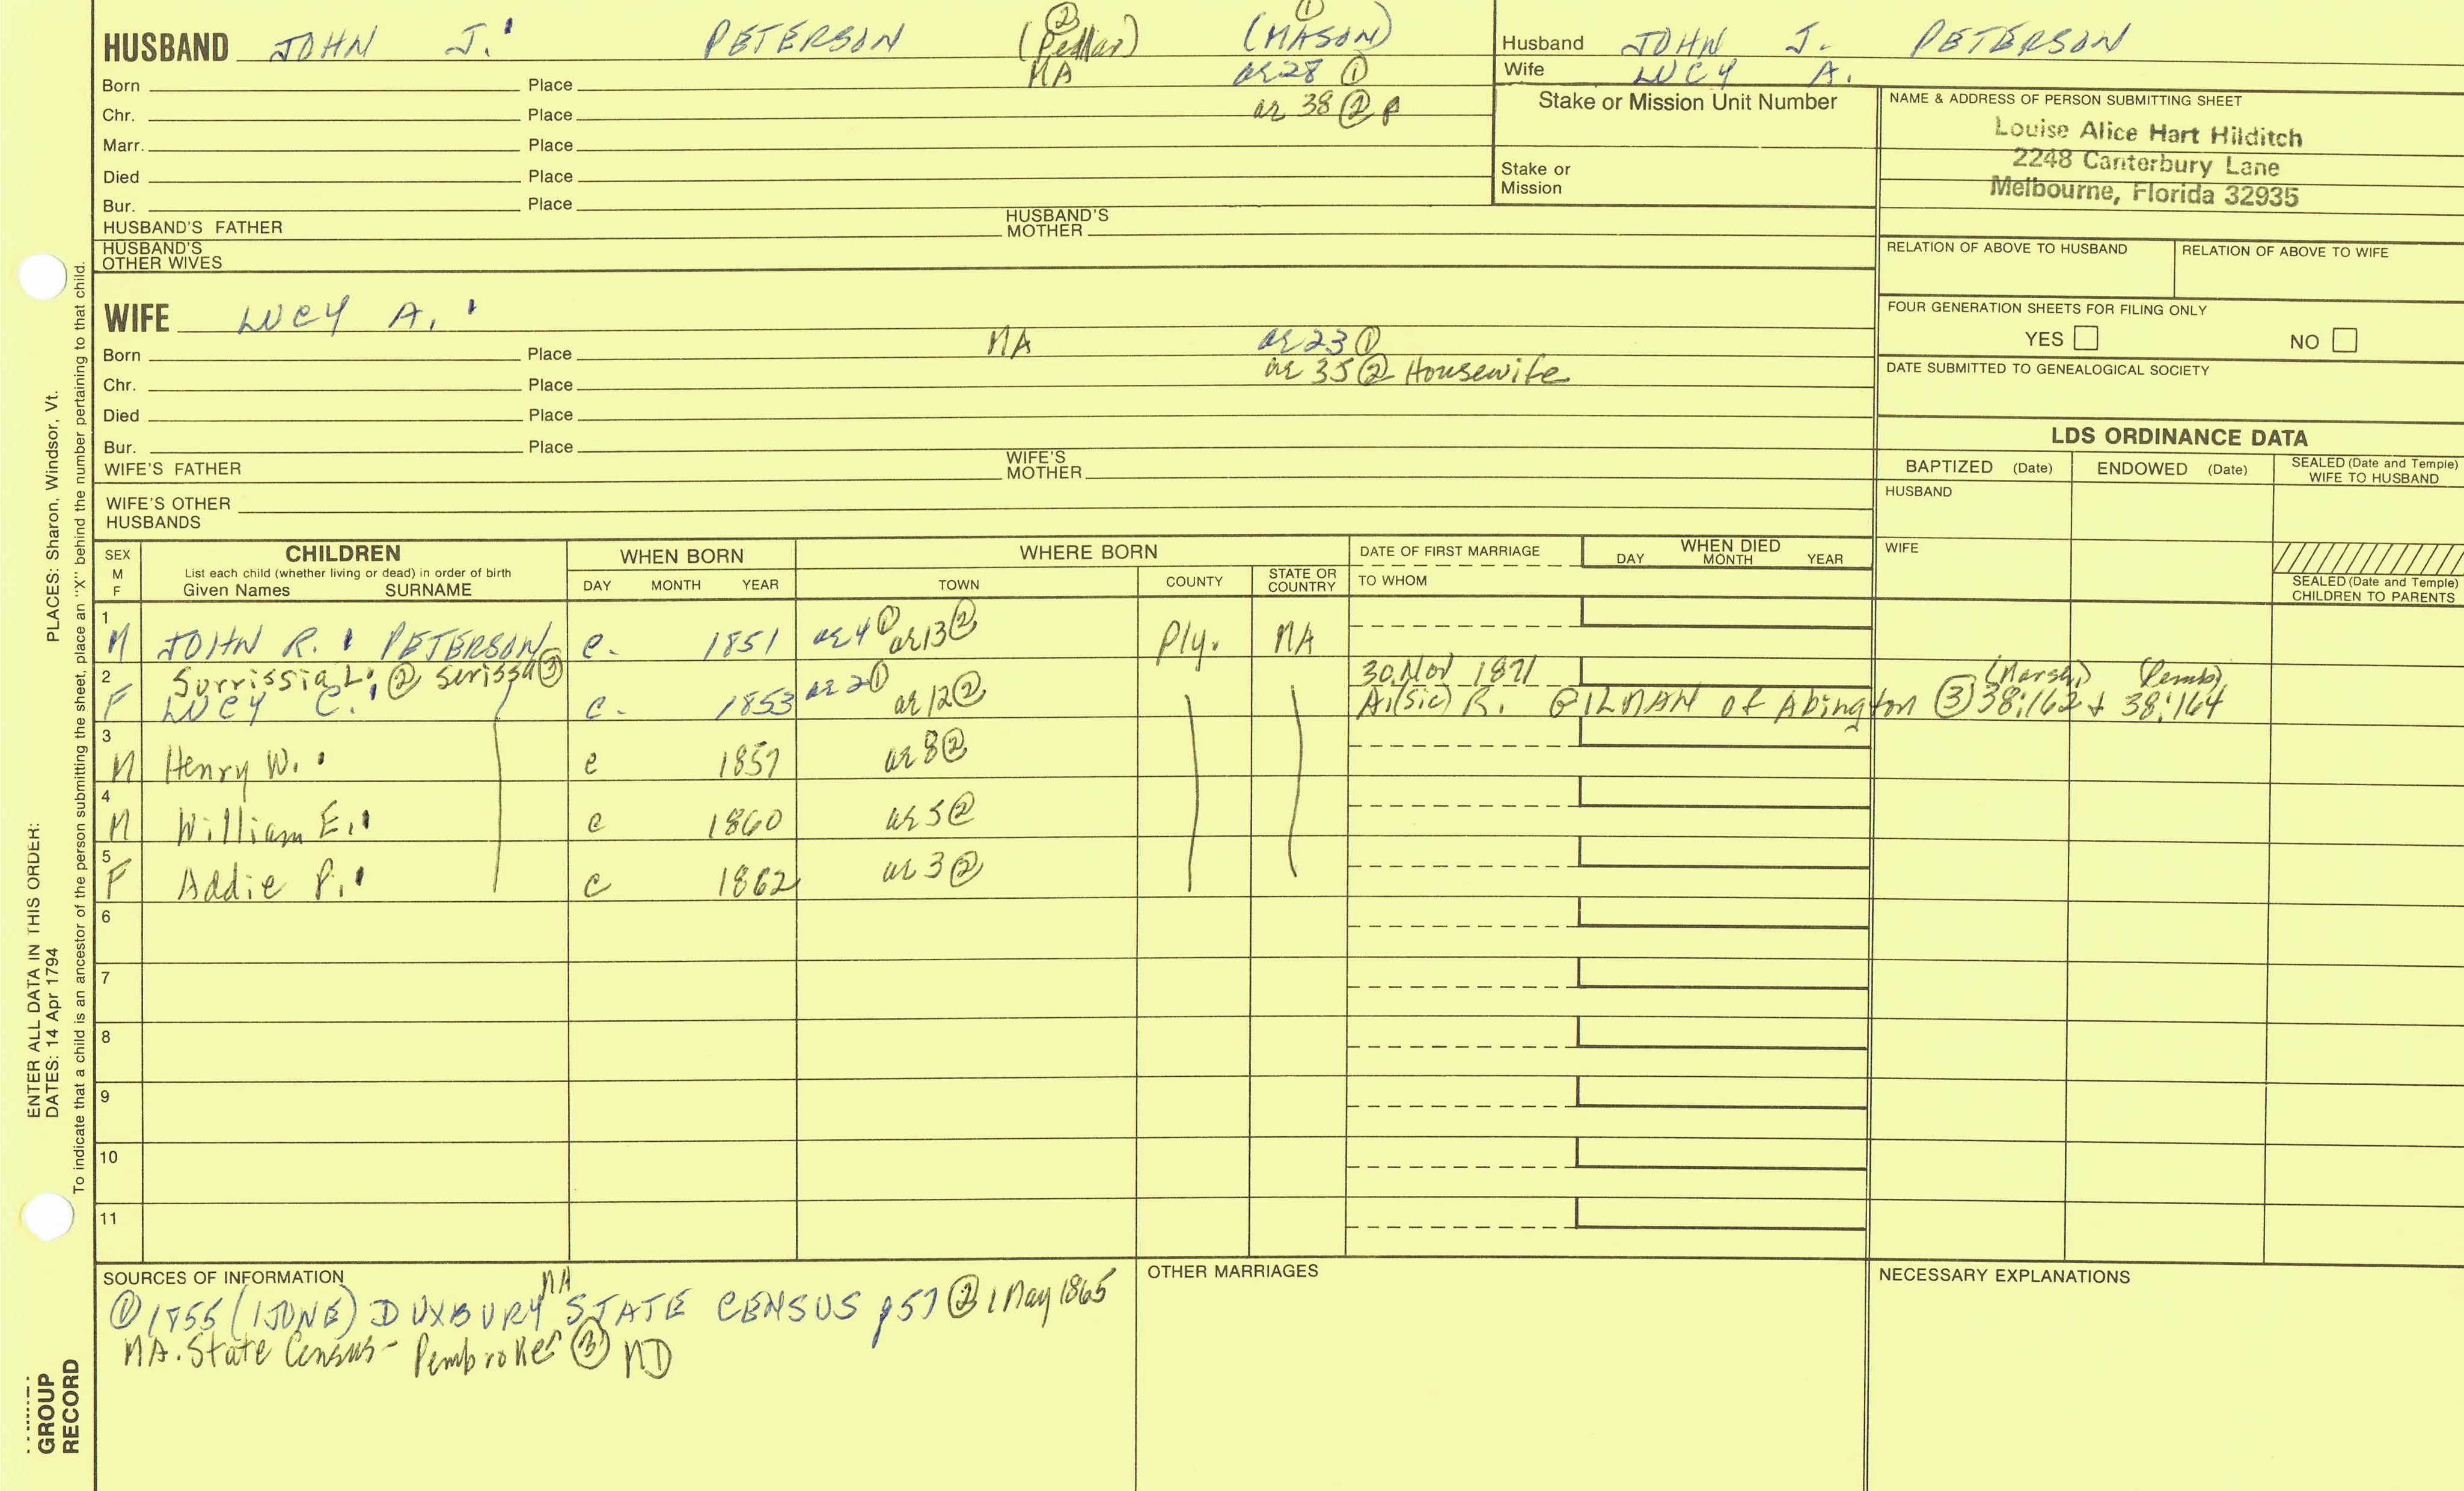 HUSBAND JOHN J. PETERSON (Pedlar) ② (MASON) ①
Born Place MA ae 28 ①
Chr. Place ae 38 ② P
Marr. Place
Died Place
Bur. Place
HUSBAND'S FATHER HUSBAND'S MOTHER
HUSBAND'S OTHER WIVES
Husband JOHN J. PETERSON
Wife LUCY A.
Stake or Mission Unit Number
Stake or Mission
NAME & ADDRESS OF PERSON SUBMITTING SHEET
Louise Alice Hart Hilditch
2248 Canterbury Lane
Melbourne, Florida 32935
RELATION OF ABOVE TO HUSBAND RELATION OF ABOVE TO WIFE
FOUR GENERATION SHEETS FOR FILING ONLY
YES NO
DATE SUBMITTED TO GENEALOGICAL SOCIETY
WIFE LUCY A.
Born Place MA ae 23 ①
Chr. Place ae 35 ② Housewife
Died Place
Bur. Place
WIFE'S FATHER WIFE'S MOTHER
WIFE'S OTHER HUSBANDS
LDS ORDINANCE DATA
BAPTIZED (Date) ENDOWED (Date) SEALED (Date and Temple) WIFE TO HUSBAND
HUSBAND
WIFE
SEALED (Date and Temple) CHILDREN TO PARENTS
SEX M F CHILDREN WHEN BORN WHERE BORN DATE OF FIRST MARRIAGE WHEN DIED
List each child (whether living or dead) in order of birth
Given Names SURNAME DAY MONTH YEAR TOWN COUNTY STATE OR COUNTRY TO WHOM DAY MONTH YEAR
1 M JOHN R. PETERSON c. 1851 ae 4 ① ae 13 ② Ply. MA
2 Surrissia L. ② Serissa ③ 30 Nov 1871 (Marsh.) (Pemb)
F LUCY C. c. 1853 ae 2 ① ae 12 ② A. (sic) R. GILMAN of Abington ③ 38:162 + 38:164
3 M Henry W. c 1857 ae 8 ②
4 M William E. c 1860 ae 5 ②
5 F Addie P. c 1862 ae 3 ②
6
7
8
9
10
11
SOURCES OF INFORMATION OTHER MARRIAGES NECESSARY EXPLANATIONS
① 1855 (1 JUNE) DUXBURY MA STATE CENSUS p57 ② 1 May 1865
MA. State Census - Pembroke ③ MD
ENTER ALL DATA IN THIS ORDER: PLACES: Sharon, Windsor, Vt.
DATES: 14 Apr 1794
To indicate that a child is an ancestor of the person submitting the sheet, place an "X" behind the number pertaining to that child.
GROUP
RECORD